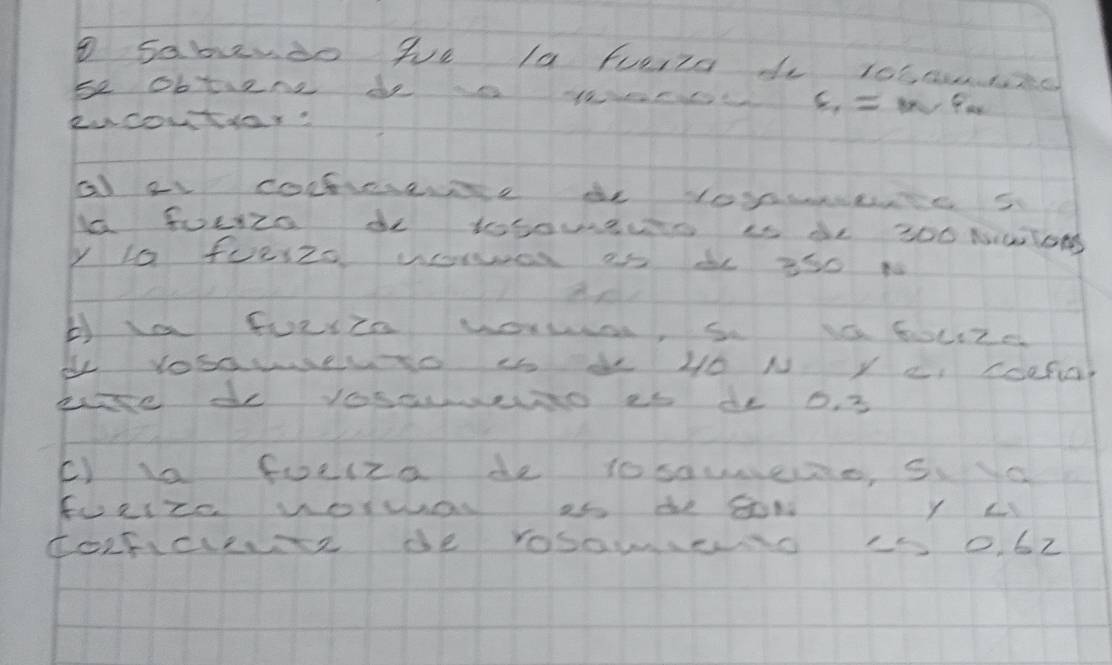 Sabiendo que la fuerza de rosamiento
se obtiene de
encontrar:
a) el coeficiente de rosamiento si
la fuerza de rosamiento es de 300 Niwtons
y la fuerza normal es de 350 N
b) la fuerza normal, si la fuerza
de rosamiento es de 40 N y el coefici
ente de rosamiento es de 0.3
c) la fuerza de rosamiento, si la
fuerza normal es de 80N y el
coeficiente de rosamiento es 0.62